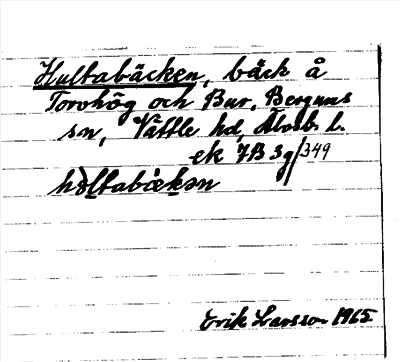 Hultabäcken, bäck å
Torvhög och Bur, Bergums
sn, Vättle hd, Älvsb. l.
ek 7B 3g/349
hòltabæ̀kən
Erik Larsson 1965